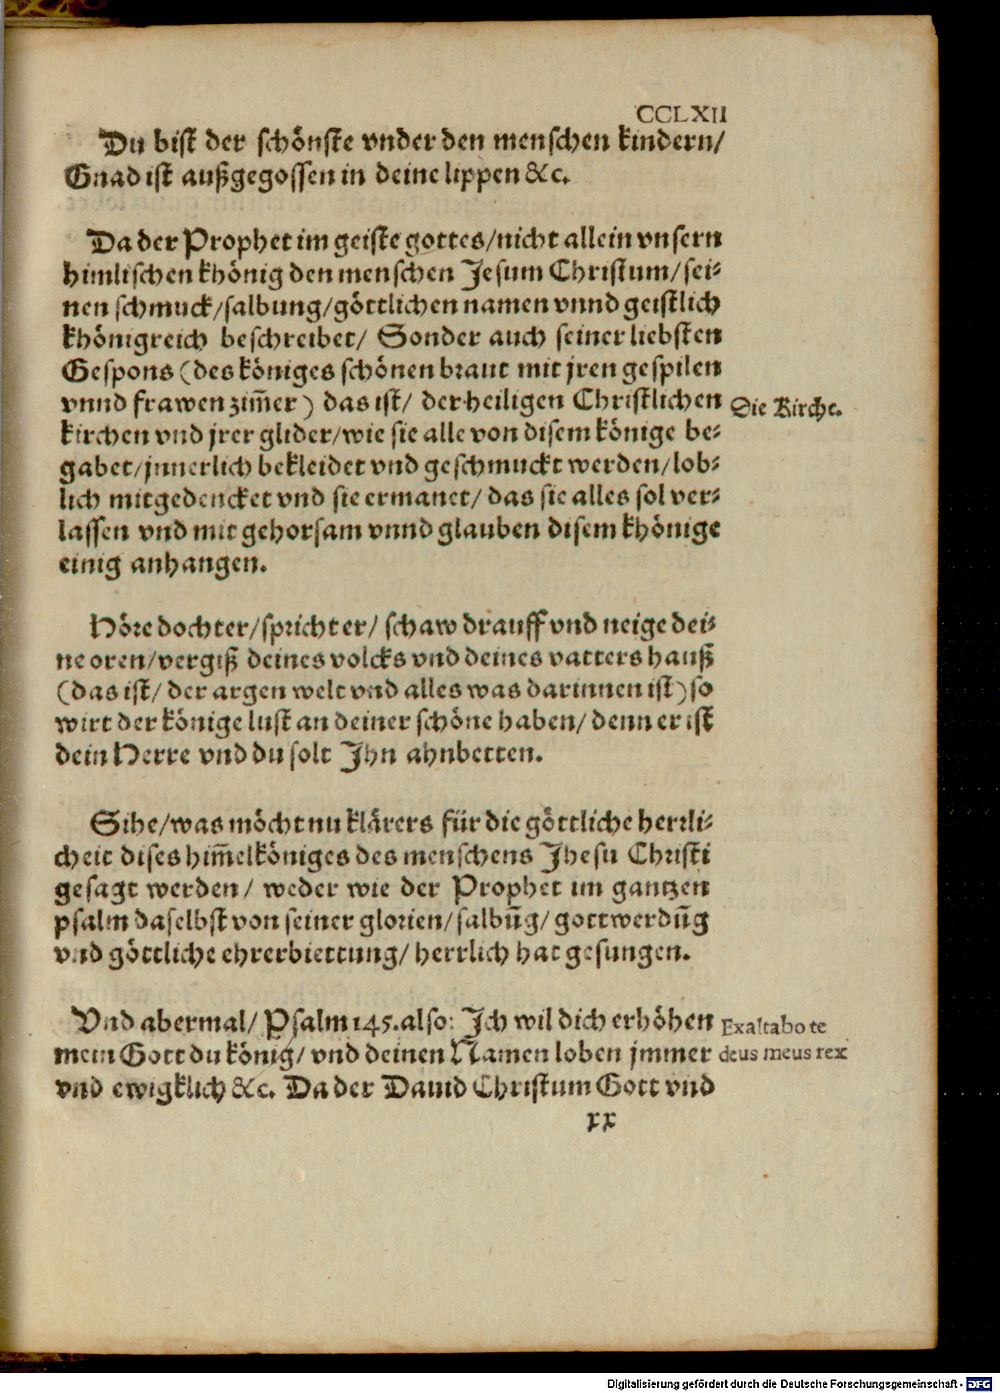 CCLXII
Du bist der schönste vnder den menschen kindern/
Gnad ist außgegossen in deine lippen &c.
Da der Prophet im geiste gottes/nicht allein vnsern
himlischen khönig den menschen Jesum Christum/sei-
nen schmuck/salbung/göttlichen namen vnnd geistlich
khönigreich beschreibet/ Sonder auch seiner liebsten
Gespons (des königes schönen braut mit jren gespilen
vnnd frawen zim̃er) das ist/ der heiligen Christlichen
Die Kirche.
kirchen vnd jrer glider/wie sie alle von disem könige be-
gabet/jnnerlich bekleidet vnd geschmuckt werden/lob-
lich mitgedencket vnd sie ermanet/ das sie alles sol ver-
lassen vnd mit gehorsam vnnd glauben disem khönige
einig anhangen.
Höre dochter/spricht er/ schaw drauff vnd neige dei-
ne oren/vergiß deines volcks vnd deines vatters hauß
(das ist/ der argen welt vnd alles was darinnen ist) so
wirt der könige lust an deiner schöne haben/ denn er ist
dein Herre vnd du solt Ihn ahnbetten.
Sihe/was möcht nu klärers für die göttliche herrli-
cheit dises him̃elköniges des menschens Jhesu Christi
gesagt werden/ weder wie der Prophet im gantzen
psalm daselbst von seiner glorien/salbũg/gottwerdũg
vnd göttliche ehrerbiettung/herrlich hat gesungen.
Vnd abermal/ Psalm 145.also: Ich wil dich erhöhen
Exaltabo te
mein Gott du könig/ vnd deinen Namen loben jmmer
deus meus rex
vnd ewigklich &c. Da der Dauid Christum Gott vnd
xx
Digitalisierung gefördert durch die Deutsche Forschungsgemeinschaft - DFG